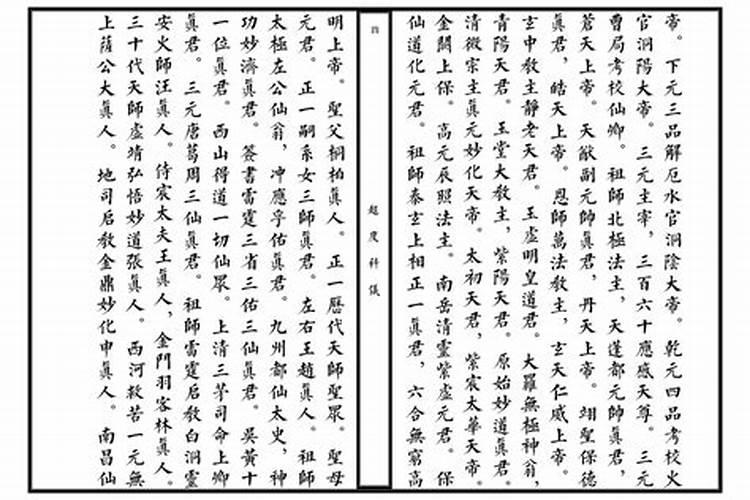 帝。下元三品解厄水官洞陰大帝。乾元四品考校火
官洞陽大帝。三元主宰,三百六十應感天尊。三元
曹局考校仙卿。祖師北極法主,天蓬都元帥眞君,
蒼天上帝。天猷副元帥眞君,丹天上帝。翊聖保德
眞君,皓天上帝。恩師萬法教主,玄天仁威上帝。
玄中教主靜老天君。玉虛明皇道君。大羅無極神翁,
青陽天君。玉堂大教主,紫陽天君。原始妙道眞君。
清微宗主眞元妙化天帝。太初天君,紫宸太華天帝。
金闕上保。高元辰照法主。南岳清靈紫虛元君。保
仙道化元君。祖師泰玄上相正一眞君,六合無窮高
超度科儀
四
明上帝。聖父桐柏眞人。正一曆代天師聖眾。聖母
元君。正一嗣系女三師眞君。左右王趙眞人。祖師
太極左公仙翁,冲應孚佑眞君。九州都仙太史,神
功妙濟眞君。簽書雷霆三省三佑三仙眞君。吳黃十
一位眞君。西山得道一切仙眾。上清三茅司命上卿
眞君。三元唐葛周三仙眞君。祖師雷霆启教白洞靈
安火師汪眞人。侍宸太夫王眞人,金門羽客林眞人。
三十代天師虛靖弘悟妙道張眞人。西河救苦一元無
上薩公大眞人。地司启教金鼎妙化申眞人。南昌仙